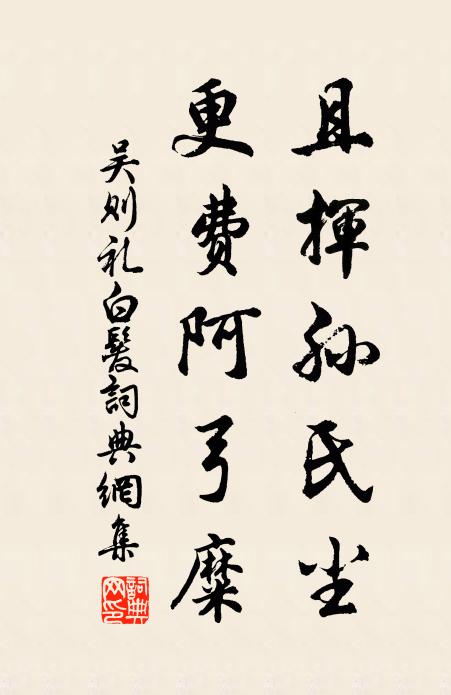 且揮孙氏尘
更費阿弓糜
吴则礼白髮詞典網集
詞典网印